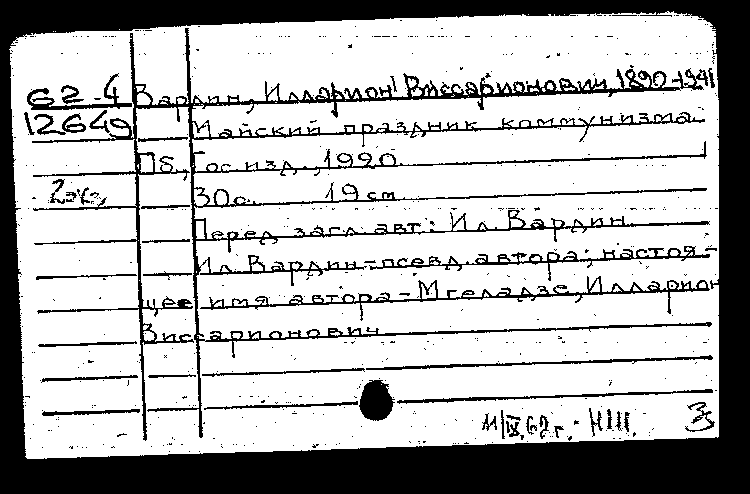 62-4 Вардин, Илларион Виссарионович, 1890-1941
12649 Майский праздник коммунизма.
Пб., Гос. изд., 1920.
2экз. 30с. 19 см
Перед загл. авт.: Ил. Вардин
Ил. Вардин-псевд. автора; настоя-
щее имя автора-Мгеладзе, Илларион
Виссарионович
11/IX.62г.